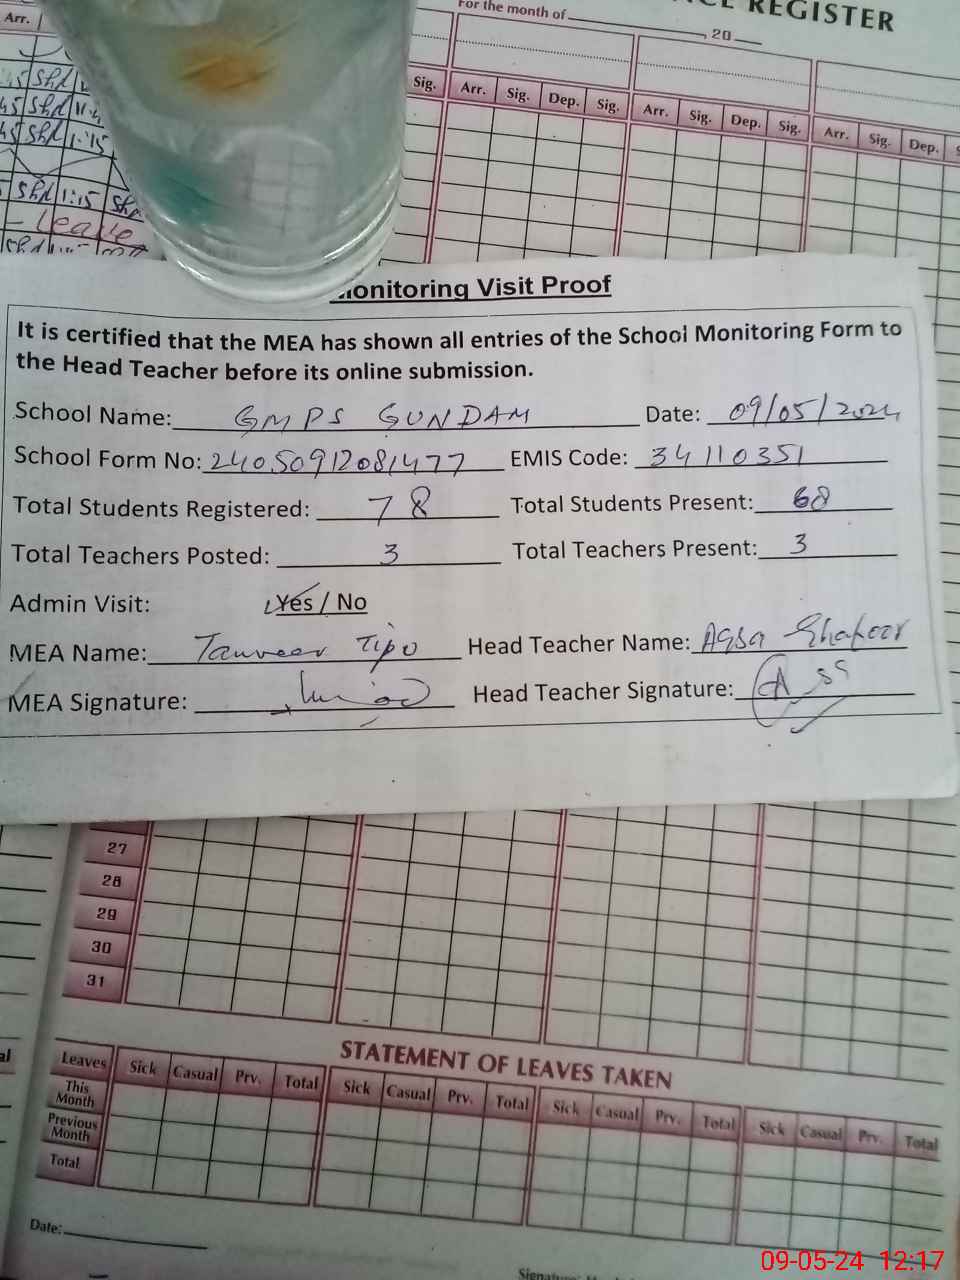 Arr.
CE REGISTER
For the month of 20
Sig. Arr. Sig. Dep. Sig. Arr. Sig. Dep. Sig. Arr. Sig. Dep.
1:15
1:15
Leave
Monitoring Visit Proof
It is certified that the MEA has shown all entries of the School Monitoring Form to
the Head Teacher before its online submission.
School Name: GMPS GUNDAM Date: 09/05/2024
School Form No: 24050912081477 EMIS Code: 34110351
Total Students Registered: 78 Total Students Present: 68
Total Teachers Posted: 3 Total Teachers Present: 3
Admin Visit: Yes / No
MEA Name: Tanveer Tipo Head Teacher Name: Aqsa Ghafoor
MEA Signature: Head Teacher Signature:
27
28
29
30
31
STATEMENT OF LEAVES TAKEN
Leaves Sick Casual Prv. Total Sick Casual Prv. Total Sick Casual Prv. Total Sick Casual Prv. Total
This Month
Previous Month
Total
Date:
09-05-24 12:17